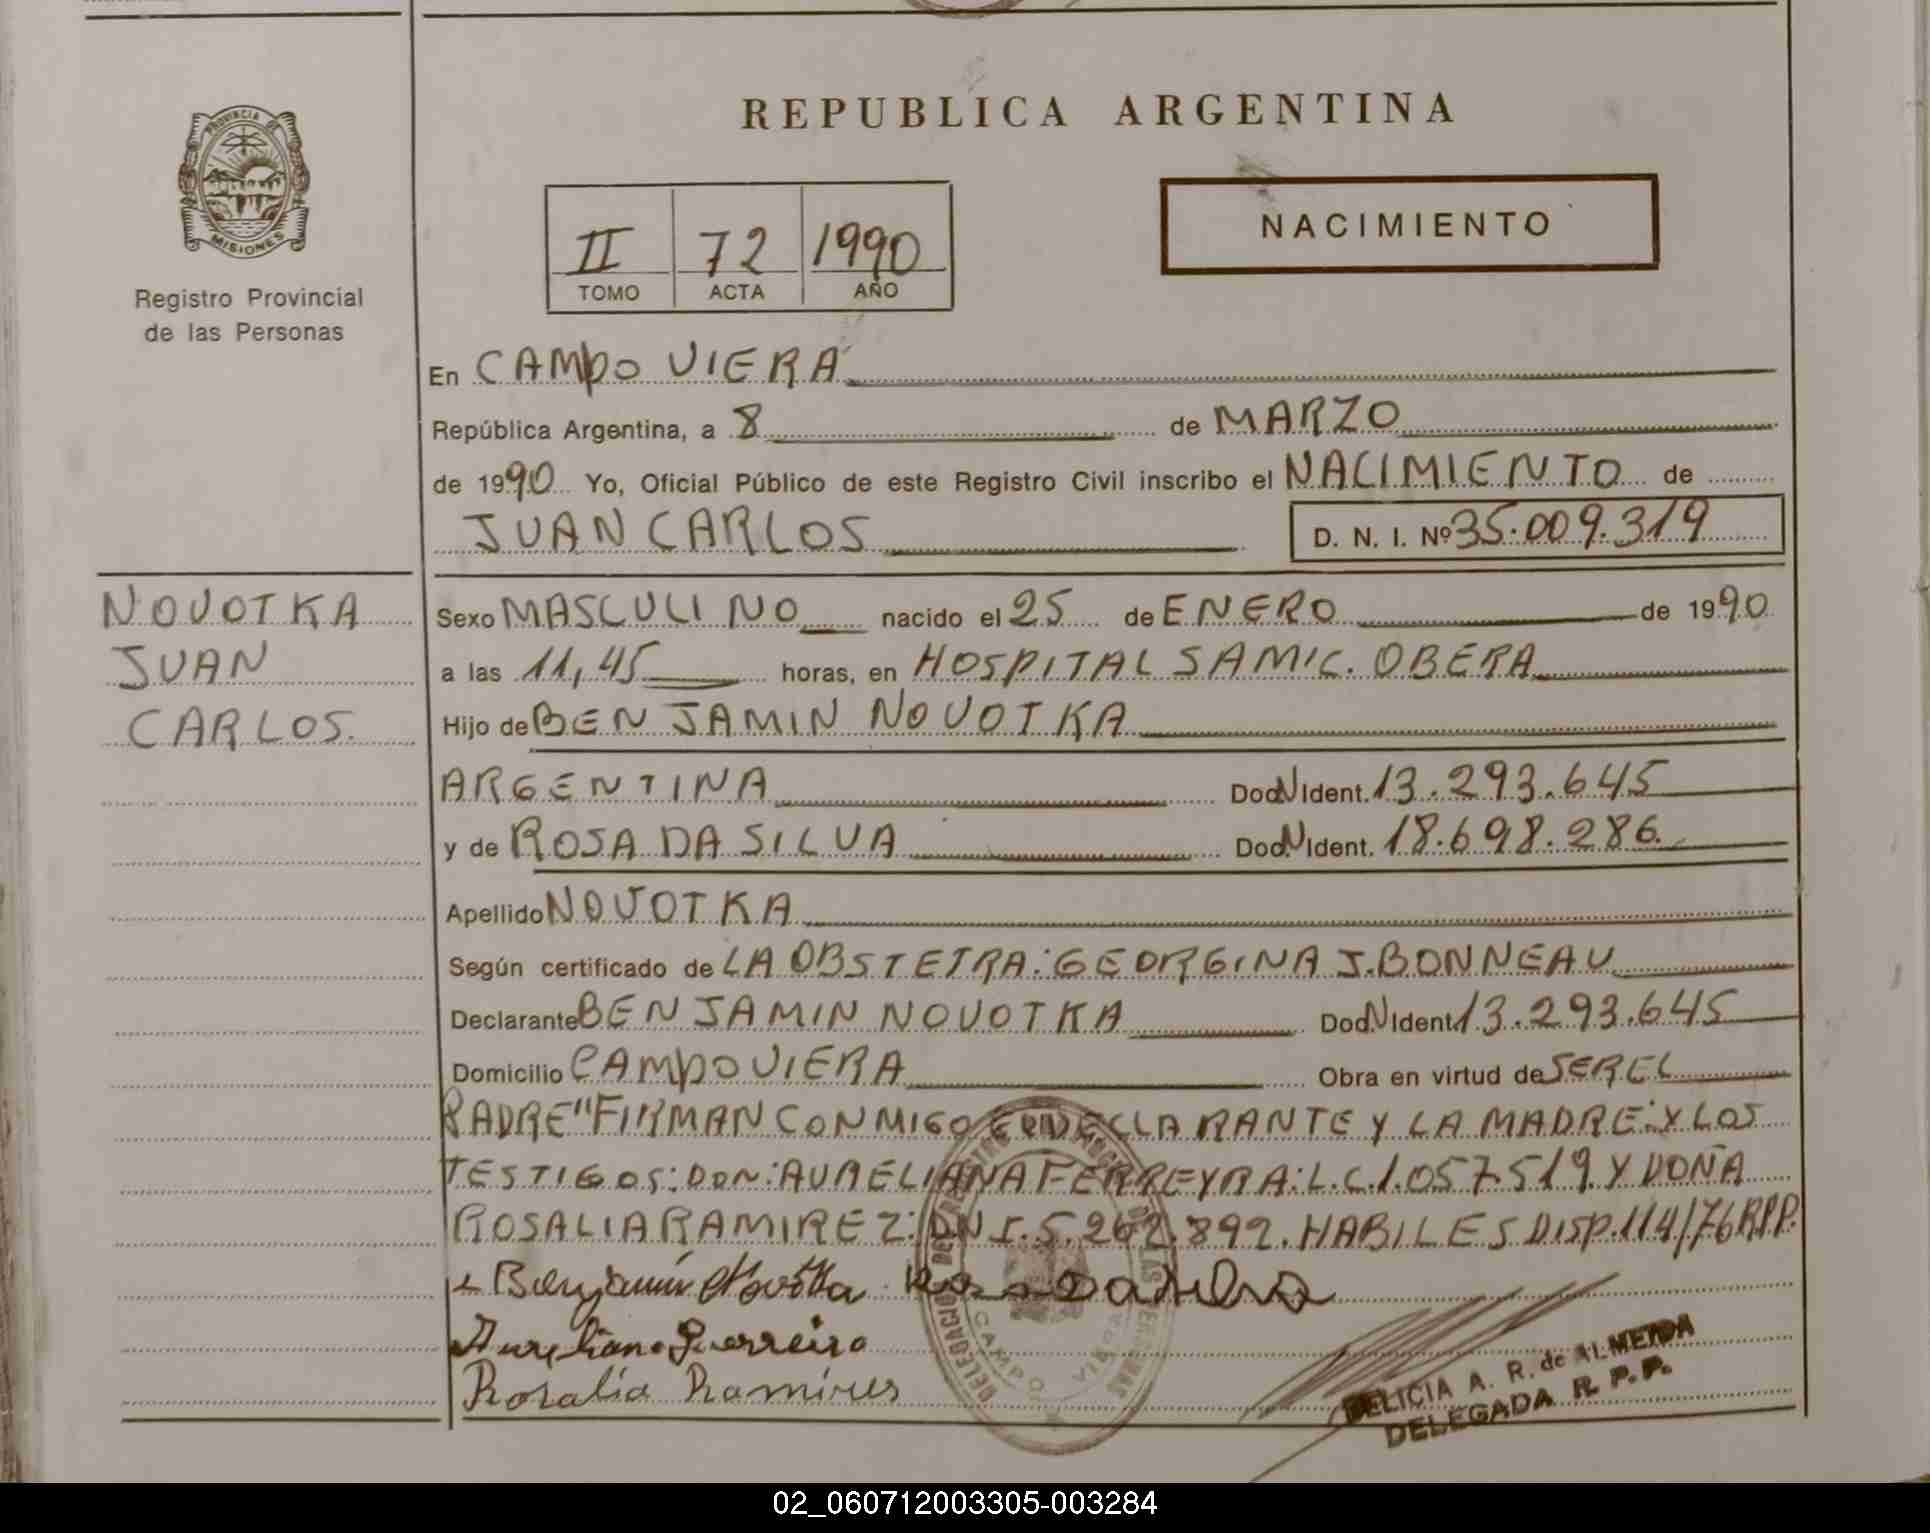 REPUBLICA ARGENTINA
PROVINCIA DE
MISIONES
Registro Provincial
de las Personas
II 72 1990
TOMO ACTA AÑO
NACIMIENTO
En CAMPO VIERA
República Argentina, a 8 de MARZO
de 1990 Yo, Oficial Público de este Registro Civil inscribo el NACIMIENTO de
JUAN CARLOS D. N. I. Nº 35.009.319
NOVOTKA
JUAN
CARLOS.
Sexo MASCULINO nacido el 25 de ENERO de 1990
a las 11,45 horas, en HOSPITAL SAMIC. OBERA
Hijo de BENJAMIN NOVOTKA
ARGENTINA Doc.N Ident. 13.293.645
y de ROSA DA SILVA Doc.N Ident. 18.698.286.
Apellido NOVOTKA
Según certificado de LA OBSTETRA: GEORGINA J. BONNEAU
Declarante BENJAMIN NOVOTKA Doc.N Ident. 13.293.645
Domicilio CAMPO VIERA Obra en virtud de SER EL
PADRE" FIRMAN CONMIGO EL DECLARANTE Y LA MADRE: Y LOS
TESTIGOS: DON: AURELIANA FERREYRA: L.C. 1.057.519. Y DOÑA
ROSALIA RAMIREZ: DNI. 5.262.892. HABILES DISP. 114/76 R.P.P.
Benjamín Novotka Rosa Da Silva
Aureliana Ferreira
Rosalia Ramires
CAMPO VIERA
FELICIA A. R. de ALMEIDA
DELEGADA R. P. P.
02_060712003305-003284